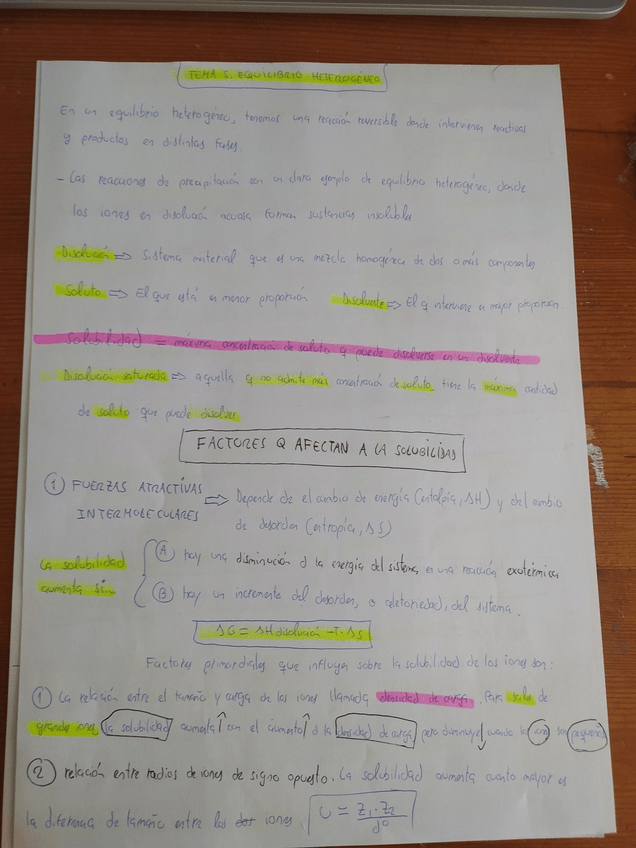 TEMA 5. EQUILIBRIO HETEROGENEO
En un equilibrio heterogéneo, tenemos una reacción reversible donde intervienen reactivos
y productos en distintas fases.
- Las reacciones de precipitación son un claro ejemplo de equilibrio heterogéneo, donde
los iones en disolución acuosa forman sustancias insolubles
Disolución ⇒ Sistema material que es una mezcla homogénea de dos o más componentes
Soluto ⇒ El que está en menor proporción Disolvente ⇒ El q interviene en mayor proporción.
Solubilidad = máxima concentración de soluto q puede disolverse en un disolvente
Disolución saturada ⇒ aquella q no admite más concentración de soluto, tiene la máxima cantidad
de soluto que puede disolver
FACTORES Q AFECTAN A LA SOLUBILIDAD
① FUERZAS ATRACTIVAS ⇒ Depende de el cambio de energía (entalpía, ΔH) y del cambio
INTERMOLECULARES de desorden (entropía, ΔS)
La solubilidad Ⓐ hay una disminución d la energía del sistema, en una reacción exotérmica
aumenta si: Ⓑ hay un incremento del desorden, o aleatoriedad, del sistema.
ΔG = ΔH disolución - T · ΔS
Factores primordiales que influyen sobre la solubilidad de los iones son:
① La relación entre el tamaño y carga de los iones llamada densidad de carga. Para sales de
grandes iones la solubilidad aumenta ↑ con el aumento ↑ d la densidad de carga pero disminuye ↓ cuando los iones son pequeños
② relación entre radios de iones de signo opuesto. La solubilidad aumenta cuanto mayor es
la diferencia de tamaño entre los iones U = Z₁·Z₂ / d⁰